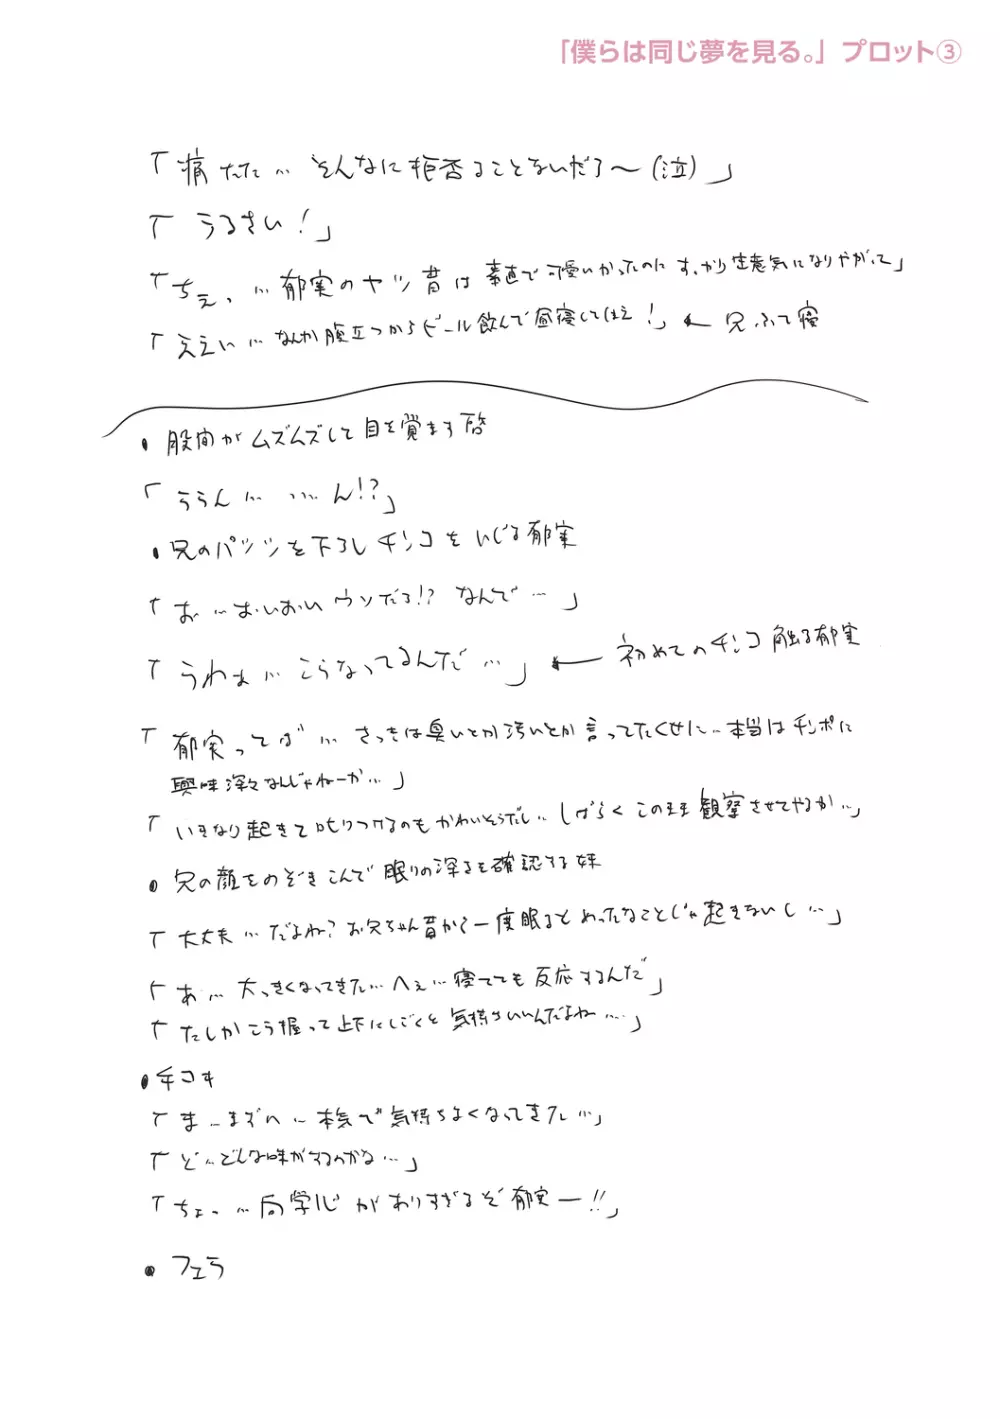 「僕らは同じ夢を見る。」 プロット③
「痛たた… そんなに拒否ることないだろ～(泣)」
「うるさい!」
「ちぇっ…郁実のヤツ昔は素直で可愛いかったのにすっかり生意気になりやがって」
「ええい…なんか腹立つからビール飲んで昼寝してしまえ!」← 兄ふて寝
● 股間がムズムズして目を覚ます啓
「ううん… …ん!?」
● 兄のパンツを下ろしチンコをいじる郁実
「お…おいおいウソだろ!? なんで…」
「うわぁ…こうなってるんだ…」← 初めてのチンコ触る郁実
「郁実ってば…さっきは臭いとか汚いとか言ってたくせに…本当はチンポに
興味深々なんじゃねーか…」
「いきなり起きて叱りつけるのもかわいそうだし…しばらくこのまま観察させてやるか…」
● 兄の顔をのぞきこんで眠りの深さを確認する妹
「大丈夫…だよね? お兄ちゃん昔から一度眠るとめったなことじゃ起きないし…」
「あ…大っきくなってきた…へぇ…寝てても反応するんだ」
「たしかこう握って上下にしごくと気持ちいいんだよね…」
● 手コキ
「ま…まずい…本気で気持ちよくなってきた…」
「ど…どんな味がするのかな…」
「ちょっ…向学心がありすぎるぞ郁実ー!!」
● フェラ